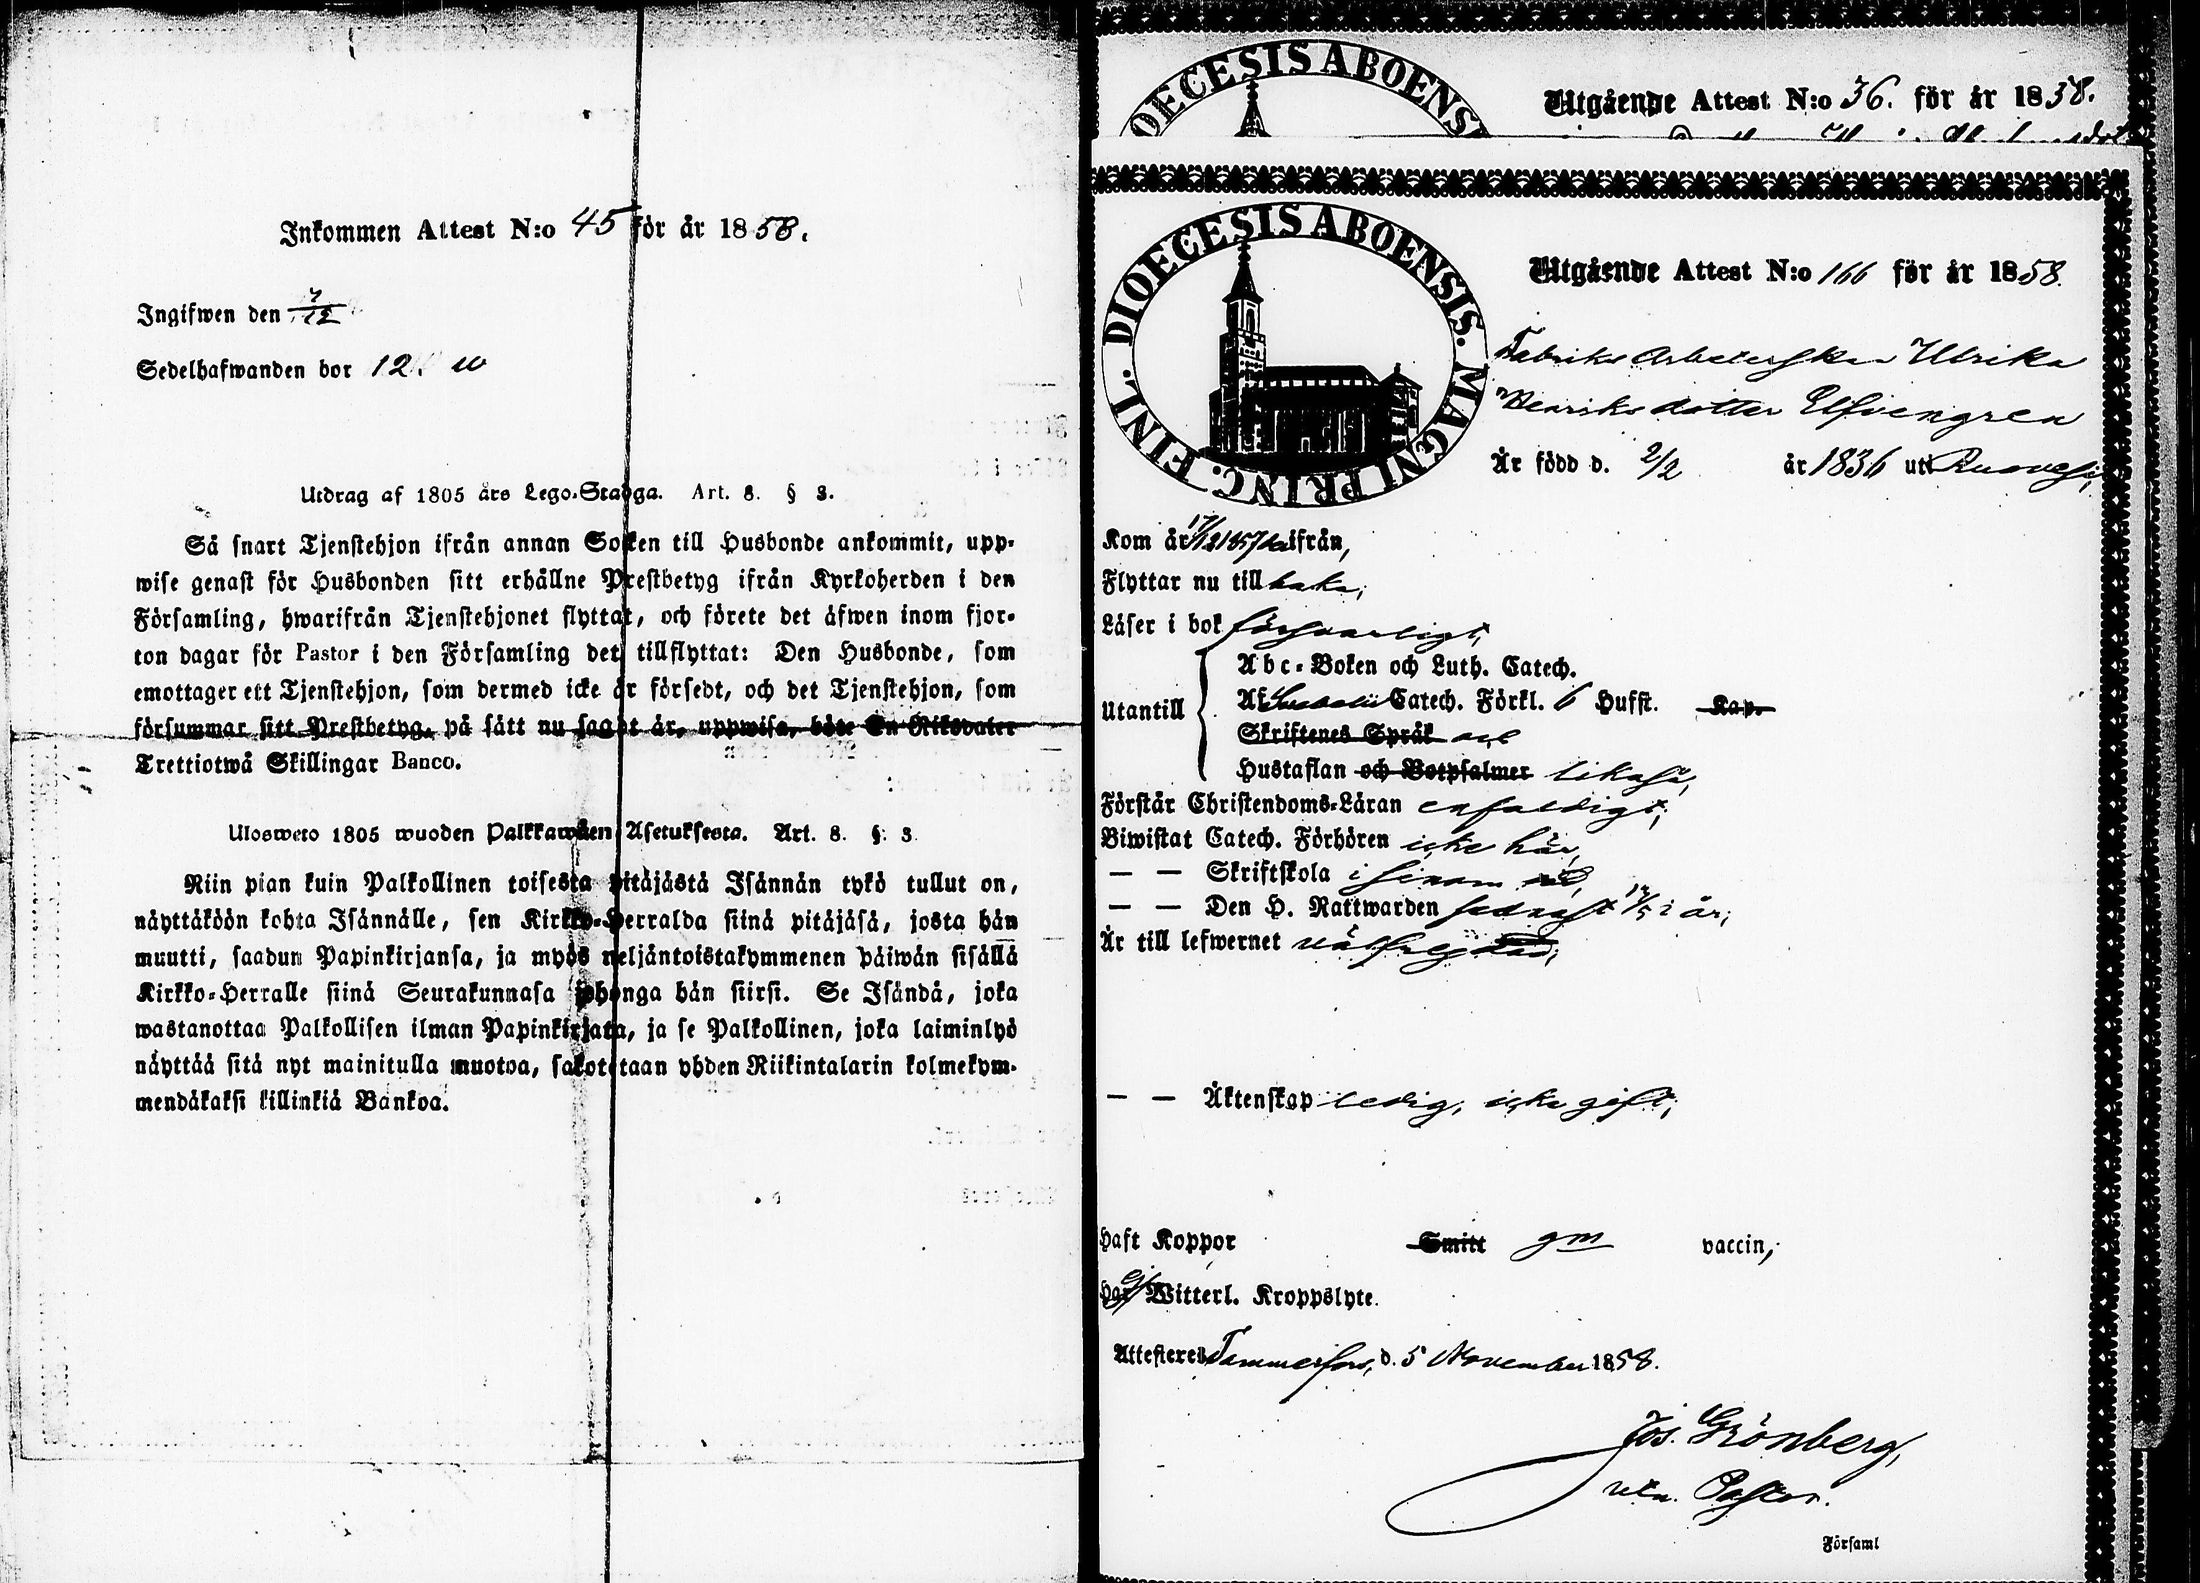 Inkommen Attest N:o 45 för år 1858.
Ingifwen den 7/12
Sedelhafwanden bor 12
Utdrag af 1805 års Lego-Stadga. Art. 8. § 3.
Så snart Tjenstehjon ifrån annan Socken till Husbonde ankommit, upp-
wise genast för Husbonden sitt erhållne Prestbetyg ifrån Kyrkoherden i den
Församling, hwarifrån Tjenstehjonet flyttat, och förete det äfwen inom fjor-
ton dagar för Pastor i den Församling det tillflyttat: Den Husbonde, som
emottager ett Tjenstehjon, som dermed icke är försedt, och det Tjenstehjon, som
försummar sitt Prestbetyg, på sätt nu sagdt är, uppwisa, böte En Riksdaler
Trettiotwå Skillingar Banco.
Ulosweto 1805 wuoden Palkkawäen Asetuksesta. Art. 8. §. 3.
Niin pian kuin Palkollinen toisesta pitäjästä Isännän tykö tullut on,
näyttäköön kohta Isännälle, sen Kirkko-Herralda siinä pitäjäsä, josta hän
muutti, saadun Papinkirjansa, ja myös neljäntoistakymmenen päiwän sisällä
Kirkko-Herralle siinä Seurakunnasa johonga hän siirsi. Se Isändä, joka
wastanottaa Palkollisen ilman Papinkirjata, ja se Palkollinen, joka laiminlyö
näyttää sitä nyt mainitulla muotoa, sakotetaan yhden Riikintalarin kolmekym-
mendäkaksi killinkiä Bankoa.
DIOECESIS ABOENSIS
Utgående Attest N:o 36. för år 1858.
DIOECESIS ABOENSIS. MAGNI PRINC. FINL.
Utgående Attest N:o 166 för år 1858.
Fabriks Arbeterskan Ulrika
Henriksdotter Elfvengren
År född d. 2/2 år 1836 uti Ruovesi,
Kom år 17/12 1857 ifrån,
Flyttar nu till baka,
Läser i bok försvarligt,
Utantill
Abc-Boken och Luth. Catech.
Af Svebelii Catech. Förkl. 6 Hufst. Kap.
Skriftenes Språk och
Hustaflan och Botpsalmer likaså,
Förstår Christendoms-Läran enfaldigt,
Biwistat Catech. Förhören icke här,
— — Skriftskola i sinom tid,
— — Den H. Nattwarden sednast 17/5 i år,
År till lefwernet välfrejdad,
— — Äktenskap ledig, icke gift,
Haft Koppor Smitt gm vaccin,
Har Ej Witterl. Kroppslyte.
Attesterer Tammerfors, d. 5 November 1858.
Jos. Grönberg,
vice Pastor.
Församl